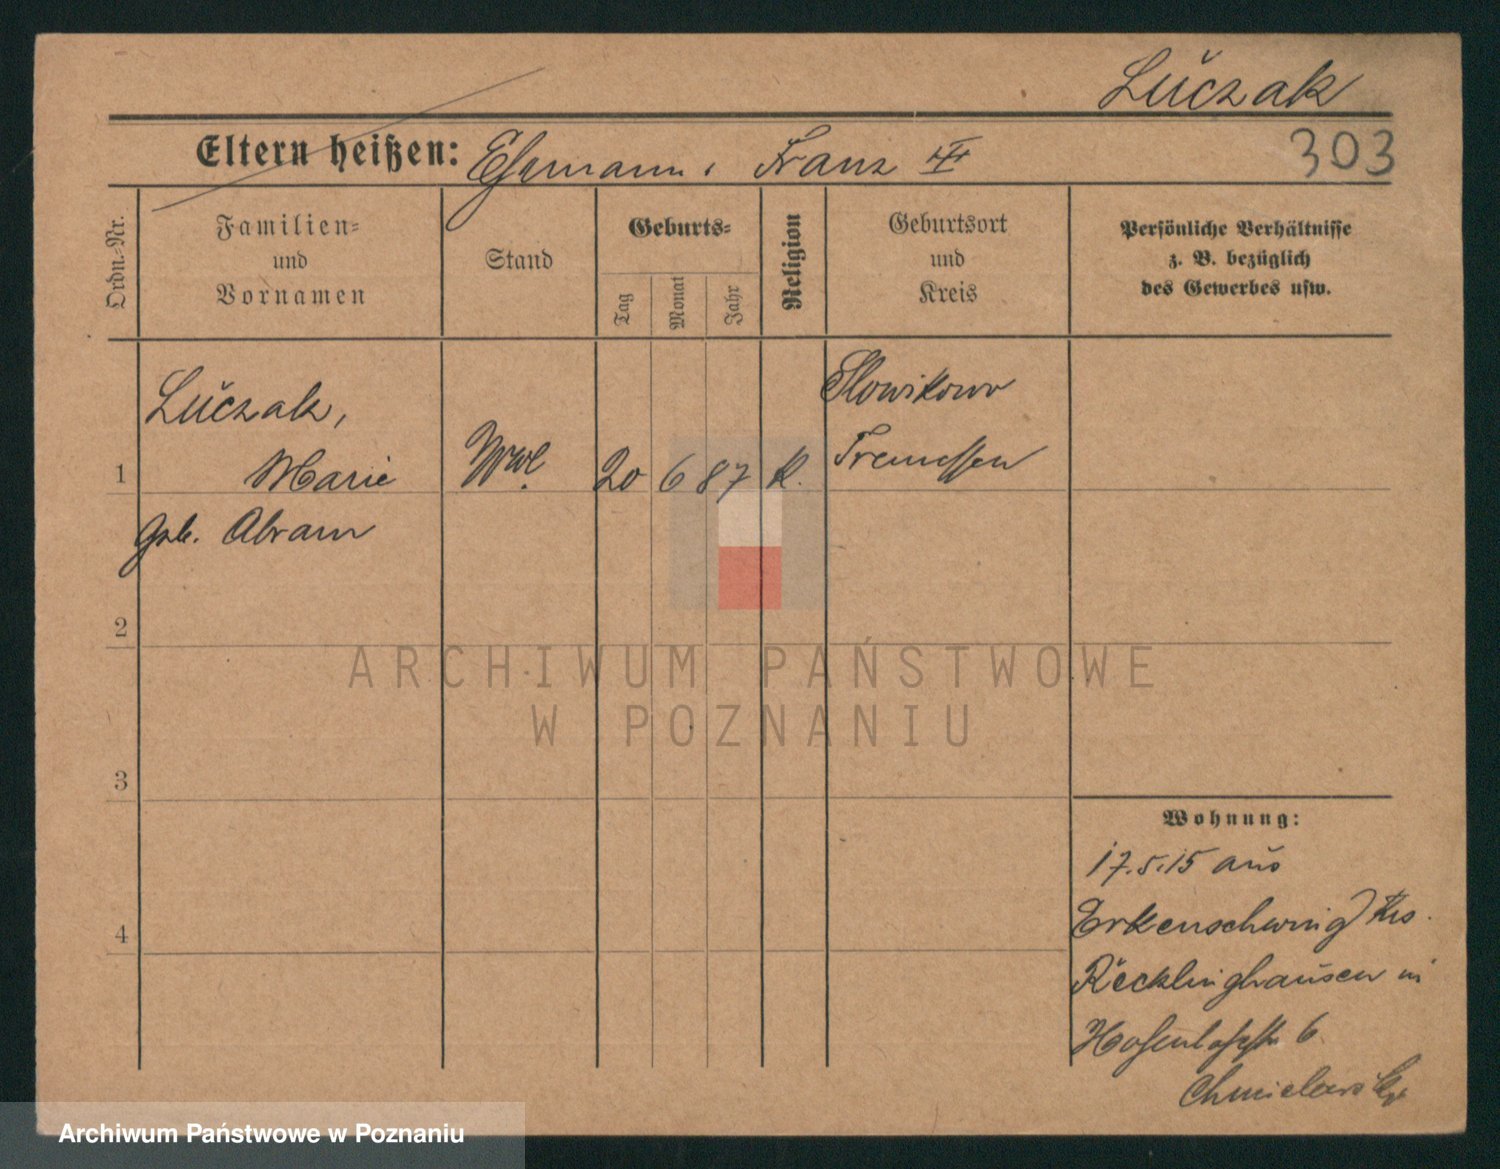 Luczak
Eltern heißen: Ehemann: Franz III
303
Ordn.-Nr.
Familien-
und
Vornamen
Stand
Geburts-
Tag
Monat
Jahr
Religion
Geburtsort
und
Kreis
Persönliche Verhältnisse
z. B. bezüglich
des Gewerbes usw.
Luczak,
Slowikowo
1 Marie Wwe. 20 6 87 K. Tremessen
geb. Abram
2
ARCHIWUM PAŃSTWOWE
W POZNANIU
3
Wohnung:
17.5.15 aus
4 Erkenschwing Krs.
Recklinghausen in
6
Archiwum Państwowe w Poznaniu